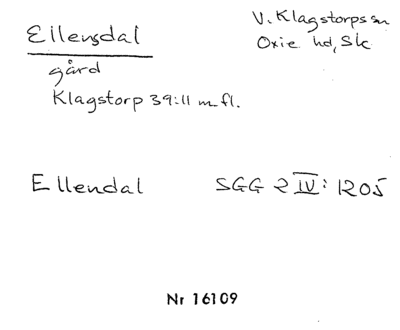 Ellensdal
V. Klagstorps sn
Oxie hd, Sk
gård
Klagstorp 39:11 m.fl.
Ellendal SGG 2 IV: 1205
Nr 16109